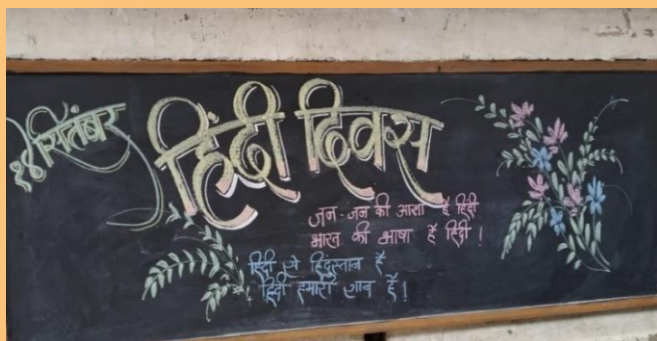 १४ सितंबर
हिंदी दिवस
जन-जन की आशा है हिंदी
भारत की भाषा है हिंदी !
हिंदी से हिंदुस्तान है
हिंदी हमारी शान है !